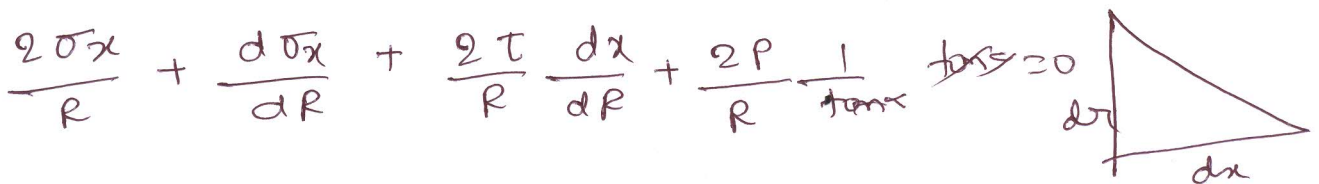 2σx/R + dσx/dR + 2τ/R dx/dR + 2P/R 1/tanα = 0
dr
dx